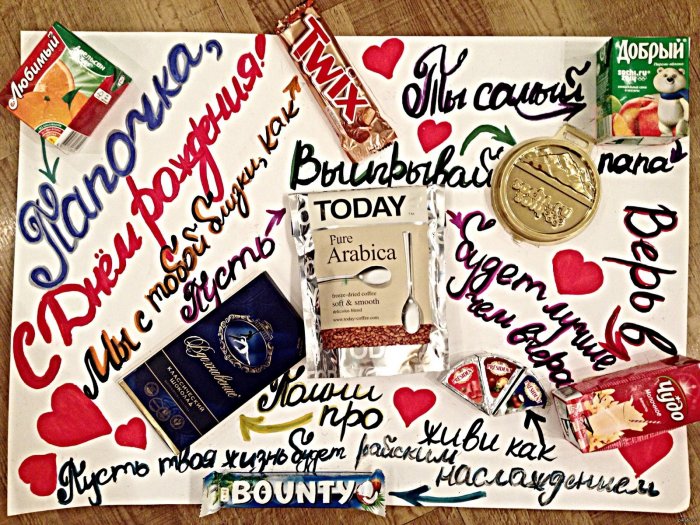 Любимый
Апельсин
Папочка,
С Днём рождения!
Мы с тобой близки, как
TWIX
Ты самый
ДОБРЫЙ
sochi.ru
2014
папа
Выигрывай
Пусть
TODAY
Pure
Arabica
freeze-dried coffee
soft & smooth
delicatus blend
www.today-coffee.com
TODAY
будет лучше
чем вчера
Верь в
Чудо
молочное
Вдохновение
КЛАССИЧЕСКИЙ
ШОКОЛАД
Помни
про
живи как
наслаждением
Пусть твоя жизнь будет райским
BOUNTY